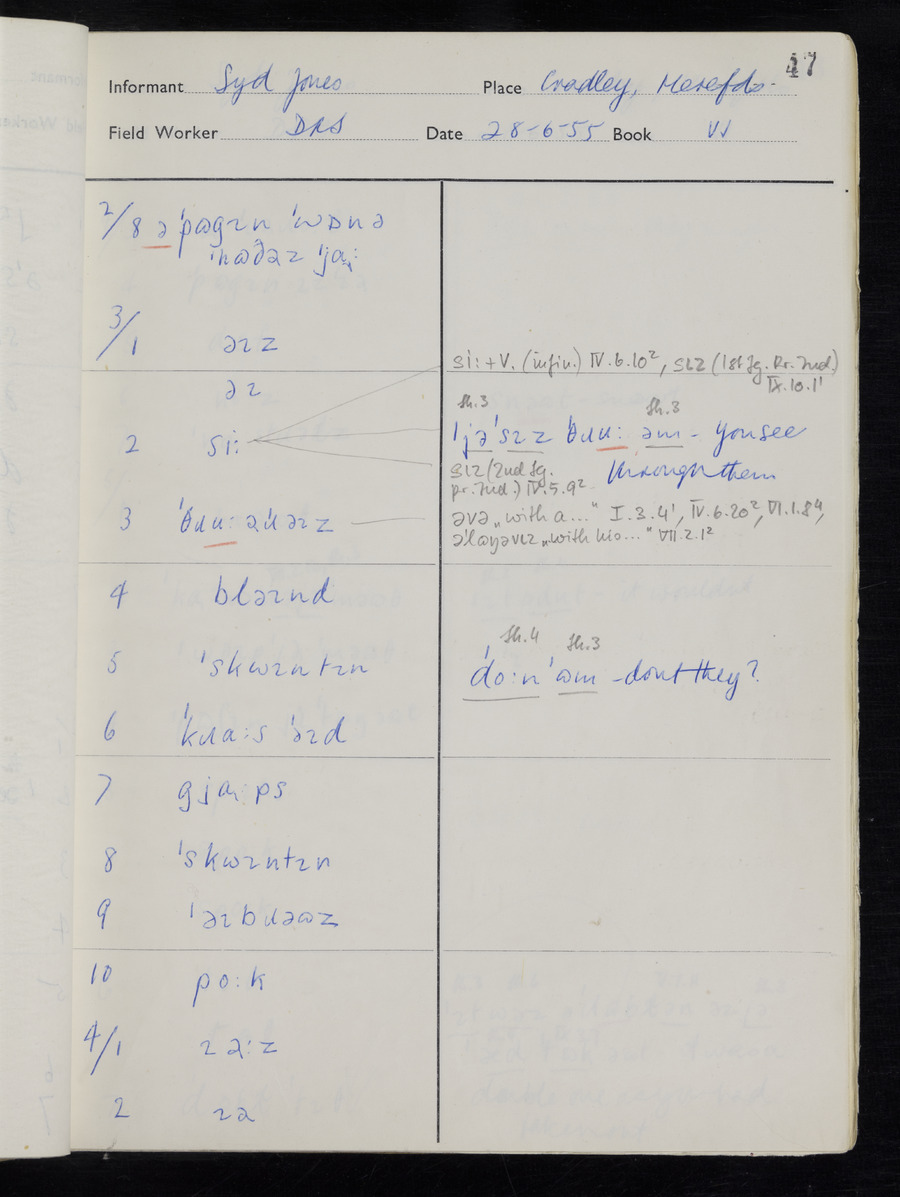 47
Informant Syd Jones Place Cradley, Herefds.
Field Worker DRS Date 28-6-55 Book VI
2/8 ə ˈpøgɪn ˈwɒnə
3/1 əɪz
əɪ
2 si:
si: + V. (infin.) IV.6.10², sɪz (1st sg. Pr. Ind.)
IX.10.1¹
Sh.3 Sh.3
ˈjəˈsɪz ˈθɹu: əm - you see
through them
sɪz (2nd sg.
pr. Ind.) IV.5.9²
3 ˈθɹu: əɹ əɪz
əvə „with a..." I.3.4¹, IV.6.20², VI.1.8⁴,
„with his..." VII.2.1²
4 bləɪnd
5 ˈskwɪntɪn
Sh.4 Sh.3
ˈdo:nˈəm - dont they?
6 ˈkɹɑ:s ˈəɪd
7 gjɑ:ps
8 ˈskwɪntɪn
9 ˈəɪbɹəøz
10 po:k
4/1 ɪə:z
2 ɪə